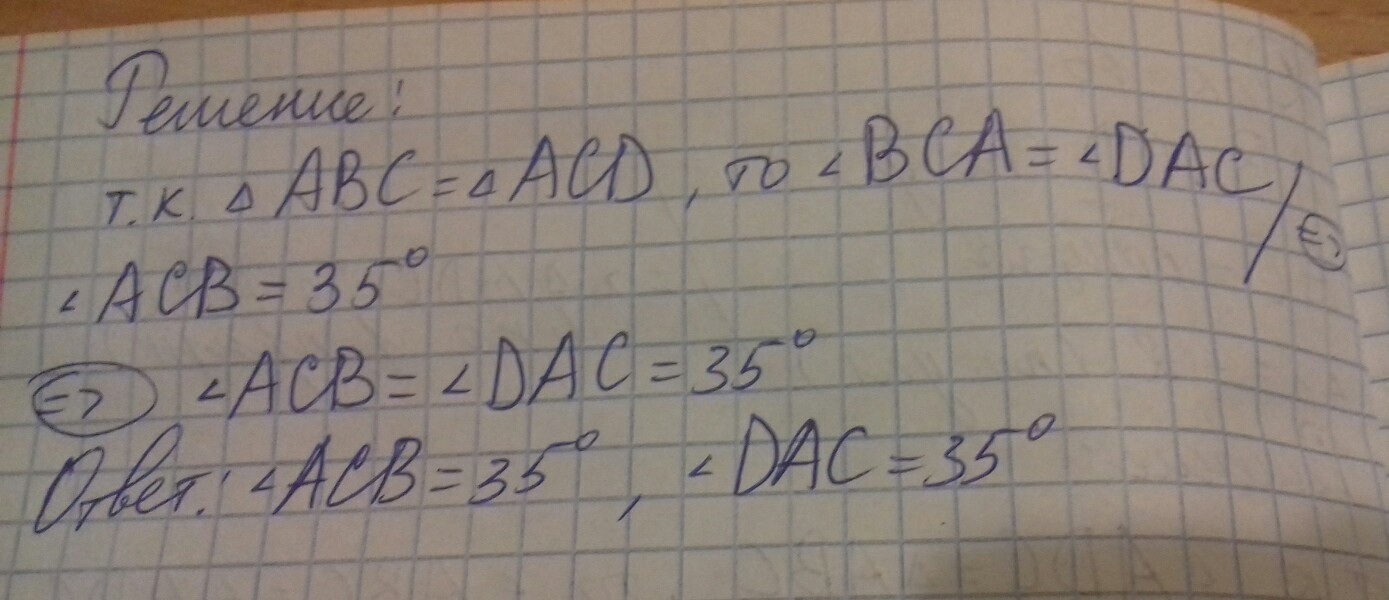 Решение:
т.к. △ ABC = △ ACD, то ∠BCA = ∠DAC / ⇒
∠ACB = 35°
⇒ ∠ACB = ∠DAC = 35°
Ответ: ∠ACB = 35°, ∠DAC = 35°